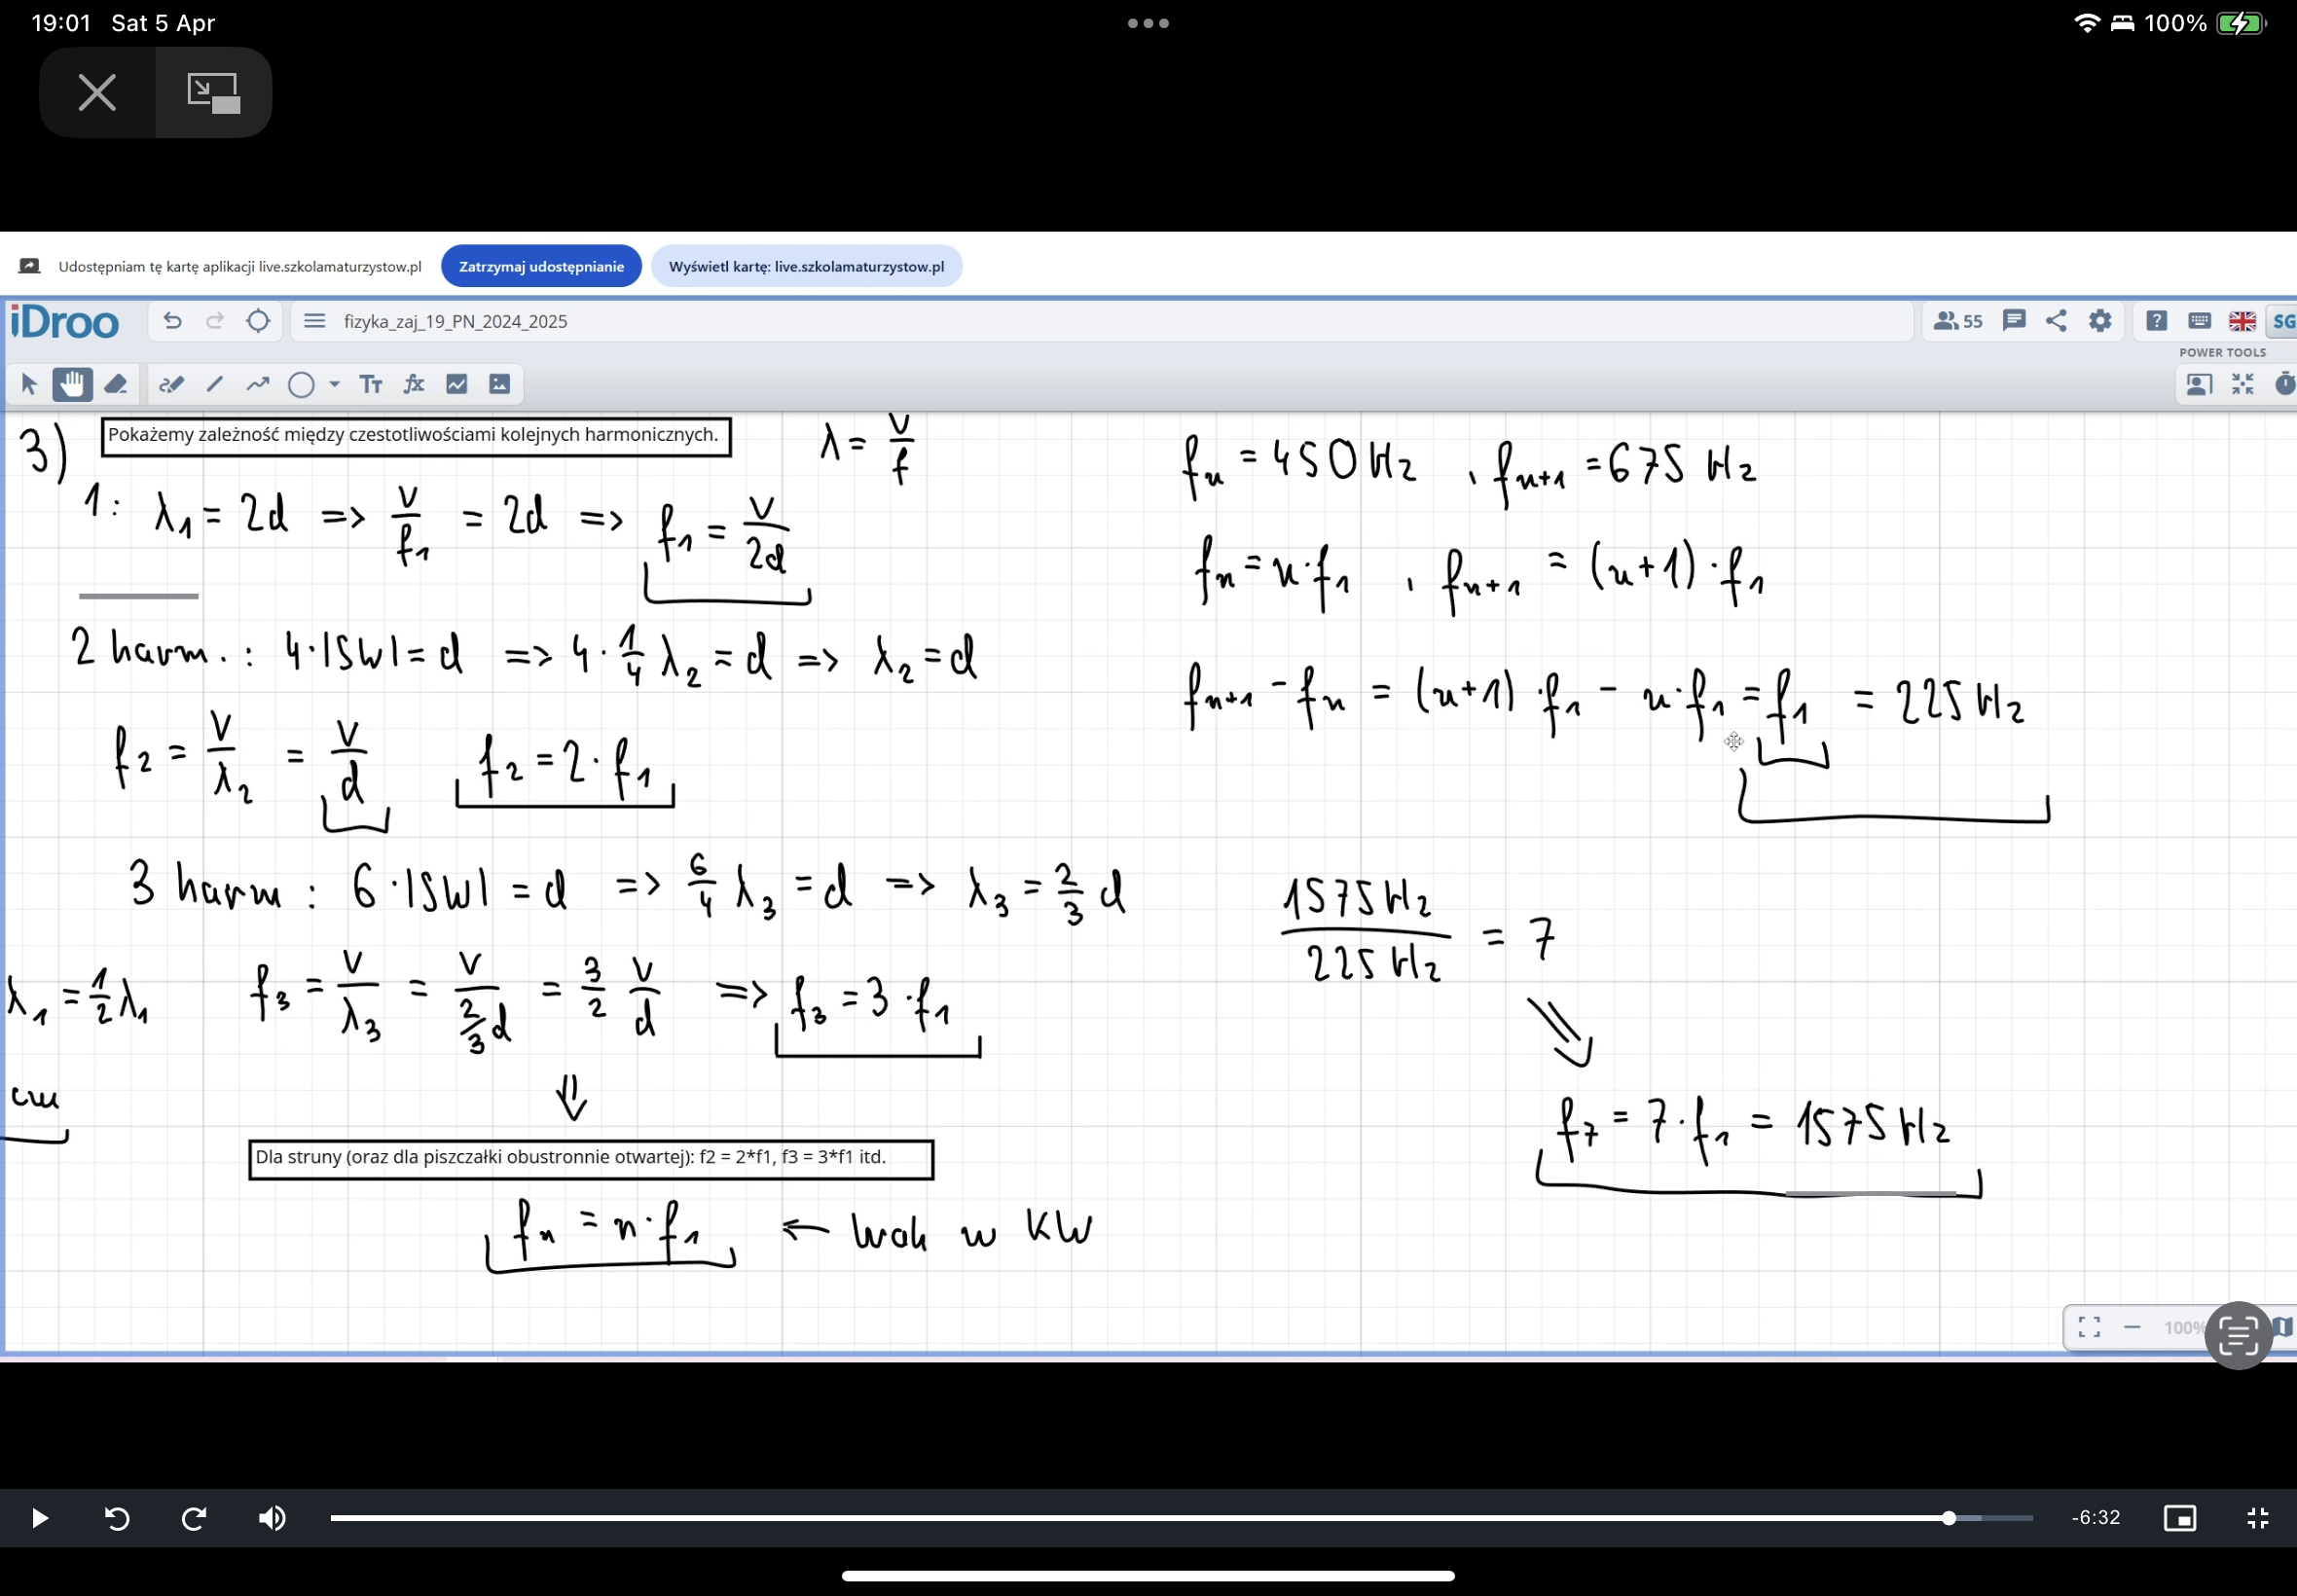 19:01 Sat 5 Apr
100%
Udostępniam tę kartę aplikacji live.szkolamaturzystow.pl Zatrzymaj udostępnianie Wyświetl kartę: live.szkolamaturzystow.pl
iDroo fizyka_zaj_19_PN_2024_2025 55 ? SG
POWER TOOLS
Tt fx
3) Pokażemy zależność między czestotliwościami kolejnych harmonicznych. λ = v/f
1: λ₁ = 2d => v/f₁ = 2d => f₁ = v/2d
2 harm.: 4·|SW| = d => 4·1/4 λ₂ = d => λ₂ = d
f₂ = v/λ₂ = v/d f₂ = 2·f₁
3 harm: 6·|SW| = d => 6/4 λ₃ = d => λ₃ = 2/3 d
λ₁ = 1/2 λ₁ f₃ = v/λ₃ = v/(2/3 d) = 3/2 v/d => f₃ = 3·f₁
cm
⇓
Dla struny (oraz dla piszczałki obustronnie otwartej): f2 = 2*f1, f3 = 3*f1 itd.
fₙ = n·f₁ ← brak w KW
fₙ = 450 Hz , fₙ₊₁ = 675 Hz
fₙ = n·f₁ , fₙ₊₁ = (n+1)·f₁
fₙ₊₁ - fₙ = (n+1)·f₁ - n·f₁ = f₁ = 225 Hz
1575 Hz / 225 Hz = 7
f₇ = 7·f₁ = 1575 Hz
100%
-6:32